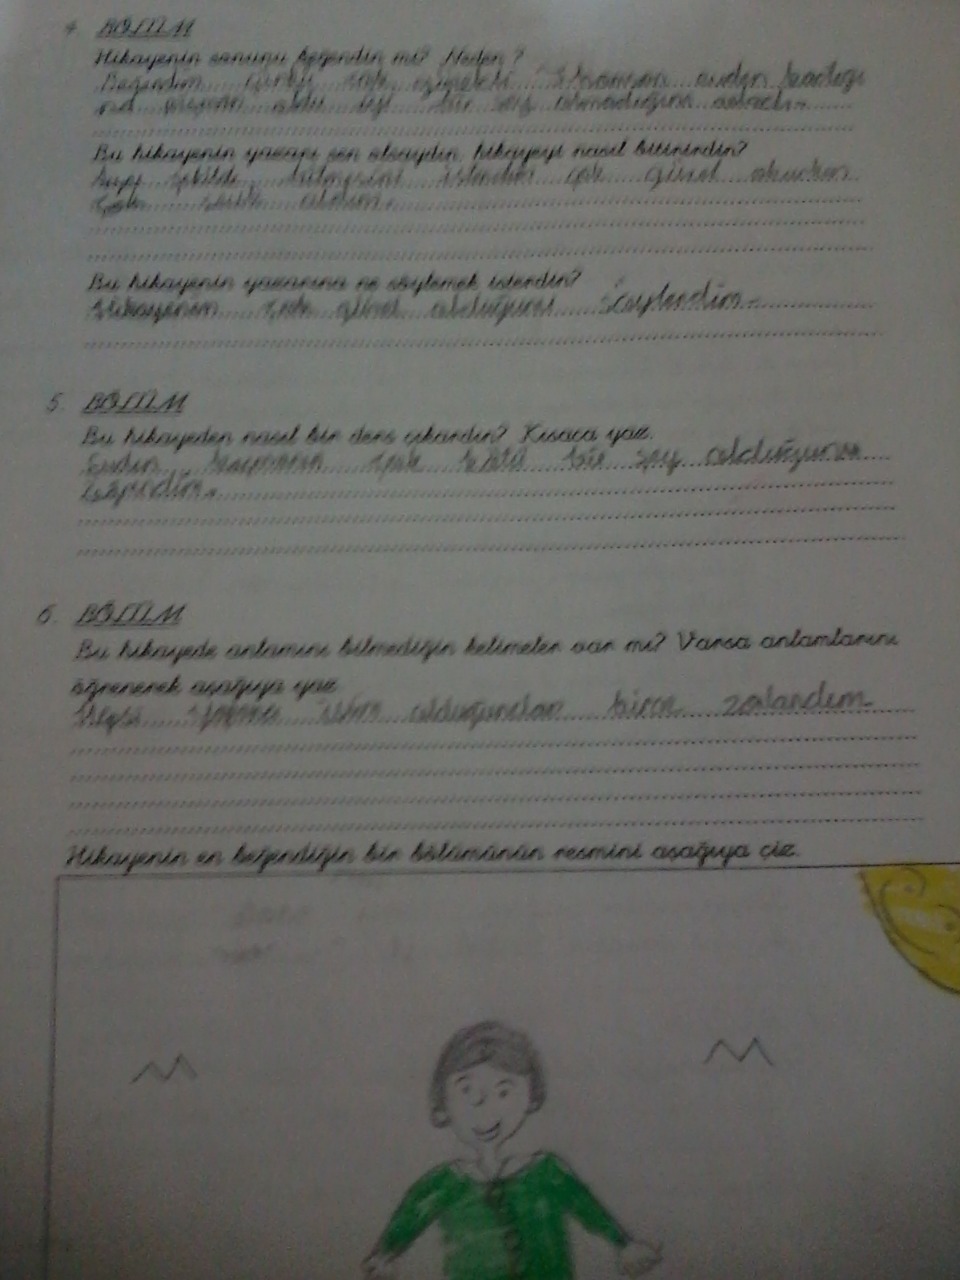 4. BÖLÜM
Hikayenin sonunu beğendin mi? Neden?
Beğendim çünkü çok evden kaçtığı
pişman oldu iyi bir şey olmadığını
Bu hikayenin yazarı sen olsaydın, hikayeyi nasıl bitirirdin?
şekilde bitmesini isterdim çok güzel okurken
çok
Bu hikayenin yazarına ne söylemek isterdin?
Hikayenin çok güzel olduğunu söylerdim.
5. BÖLÜM
Bu hikayeden nasıl bir ders çıkardın? Kısaca yaz.
Evden kaçmanın çok kötü bir şey olduğunu
öğrendim.
6. BÖLÜM
Bu hikayede anlamını bilmediğin kelimeler var mı? Varsa anlamlarını
öğrenerek aşağıya yaz.
Hepsi isim olduğundan biraz zorlandım
Hikayenin en beğendiğin bir bölümünün resmini aşağıya çiz.